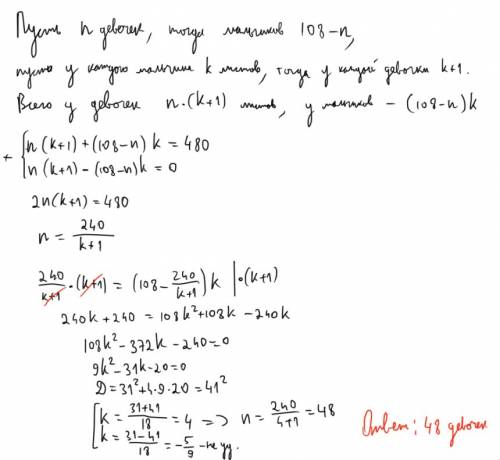 Пусть n девочек, тогда мальчиков 108-n,
пусть у каждого мальчика k листов, тогда у каждой девочки k+1.
Всего у девочек n·(k+1) листов, у мальчиков - (108-n)k
+ { n(k+1)+(108-n)k = 480
n(k+1)-(108-n)k = 0
2n(k+1) = 480
n = 240/(k+1)
240/(k+1)·(k+1) = (108 - 240/(k+1))k |·(k+1)
240k+240 = 108k²+108k-240k
108k²-372k-240=0
9k²-31k-20=0
D=31²+4·9·20=41²
[ k = (31+41)/18 = 4 => n = 240/(4+1) = 48
k = (31-41)/18 = -5/9 - не уд.
Ответ: 48 девочек